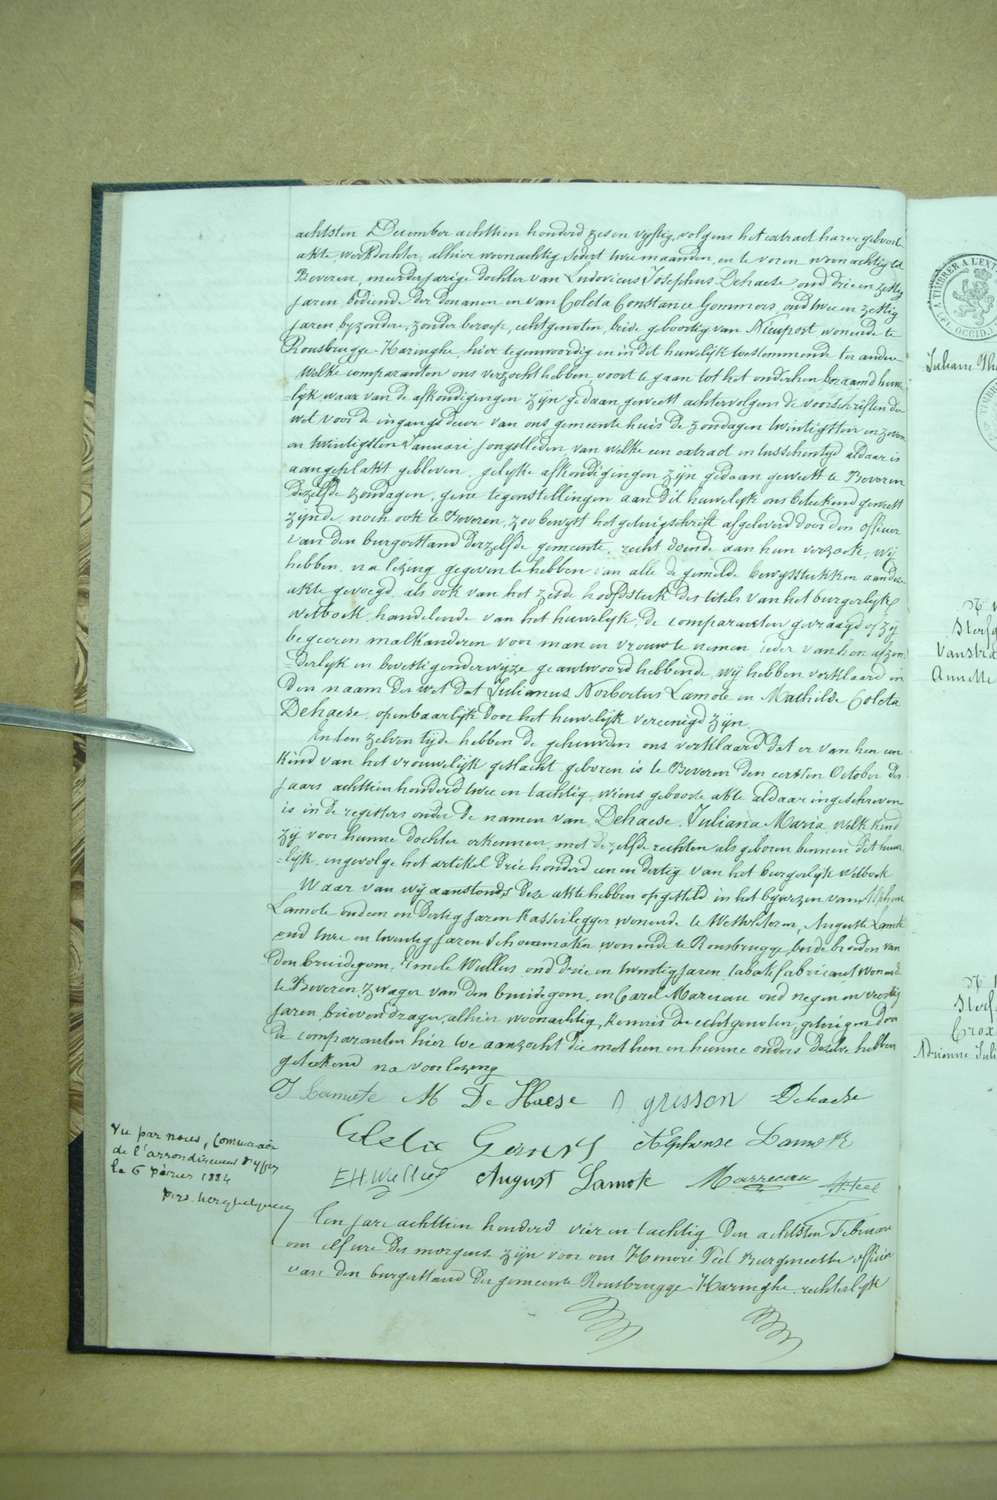 achtsten December achttien honderd zes en vyftig, volgens het extract harer geboort
akte, werkdochter, alhier woonachtig sedert twee maanden, en te voren woonachtig te
Beveren, meerderjarige dochter van Ludovicus Josephus Dehaese, oud drie en zestig
jaren bediende der douanen en van Coleta Constance Gommers, oud twee en zestig
jaren, byzondere, zonder beroep, echtgenoten, beide geboortig van Nieuport wonende te
Rousbrugge-Haringhe, hier tegenwoordig en in dit huwelijk toestemmende ter andere
Welke comparanten ons verzocht hebben voort te gaan tot het onderhen beraamd huwe
=lyk waar van de afkondigingen zyn gedaan geweest achtervolgens de voorschriften der
wet voor de ingangsdeur van ons gemeente huis de zondagen twintigsten en zeven
en twintigsten Januari jongstleden van welke een extract en tusschentyd aldaar is
aangeplakt gebleven, gelyke afkondigingen zijn gedaan geweest te Beveren
dezelfde zondagen, geene tegenstellingen aan dit huwelyk ons betekend geweest
zynde, noch ook te Beveren, zoo bewyst het getuigschrift afgeleverd door den officier
van den burgerstand derzelfde gemeente, recht doende aan hun verzoek, wij
hebben, na lezing gegeven te hebben van alle de gemelde bewysstukken aan deze
akte gevoegd, als ook van het zesde hoofdstuk des titels van het burgerlyk
wetboek, handelende van het huwelyk, de comparanten gevraagd of zij
begeeren malkanderen voor man en vrouw te nemen ieder van hen afzon
=derlyk en bevestigenderwyze geantwoord hebbende, wij hebben verklaard in
den naam der wet dat Julianus Norbertus Lamote en Mathilde Coleta
Dehaese, openbaarlijk door het huwelijk vereenigd zijn
En ten zelven tijde hebben de gehuwden ons verklaard dat er van hen een
kind van het vrouwelijk geslacht geboren is te Beveren den eersten October des
jaars achttien honderd twee en tachtig, wiens geboorte akte aldaar ingeschreven
is in de registers onder de namen van Dehaese, Juliana Maria, welk kind
zij voor hunne dochter erkennen, met dezelfde rechten als geboren binnen dit huwe
=lijk, ingevolge het artikel drie honderd een en dertig van het burgerlijk wetboek
Waar van wij aanstonds deze akte hebben opgesteld in het bywezen van Alphonse
Lamote oud een en dertig jaren kasseilegger, wonende te Westvleteren, Auguste Lamote
oud twee en twintig jaren schoenmaker wonende te Rousbrugge, beide broeders van
den bruidegom, Emile Wullus oud drie en twintig jaren, tabakfabricant wonende
te Beveren, zwager van den bruidegom, en Carel Marecau oud negen en veertig
jaren, brievendrager, alhier woonachtig, kennis der echtgenoten, getuigen door
de comparanten hier toe aanzocht die met hen en hunne ouders dezelve hebben
geteekend na voorlezing
J Lamote M De Haese Dehaese
Alphonse Lamote
EH Wullus August Lamote Marrecau
Vu par nous, Commissaire
de l'arrondissement d'Ypres
le 6 février 1884
Ten jare achttien honderd vier en tachtig den achtsten Februari
om elf ure des morgens zijn voor ons Honoré Deel Burgmeester officier
van den burgerstand der gemeente Rousbrugge-Haringhe, rechterlyk
A TIMBRER A L'EXT
OCCID.
Juliane
Sterf
Vanstra
Annette
Sterf
Crox
Adrienne Juli